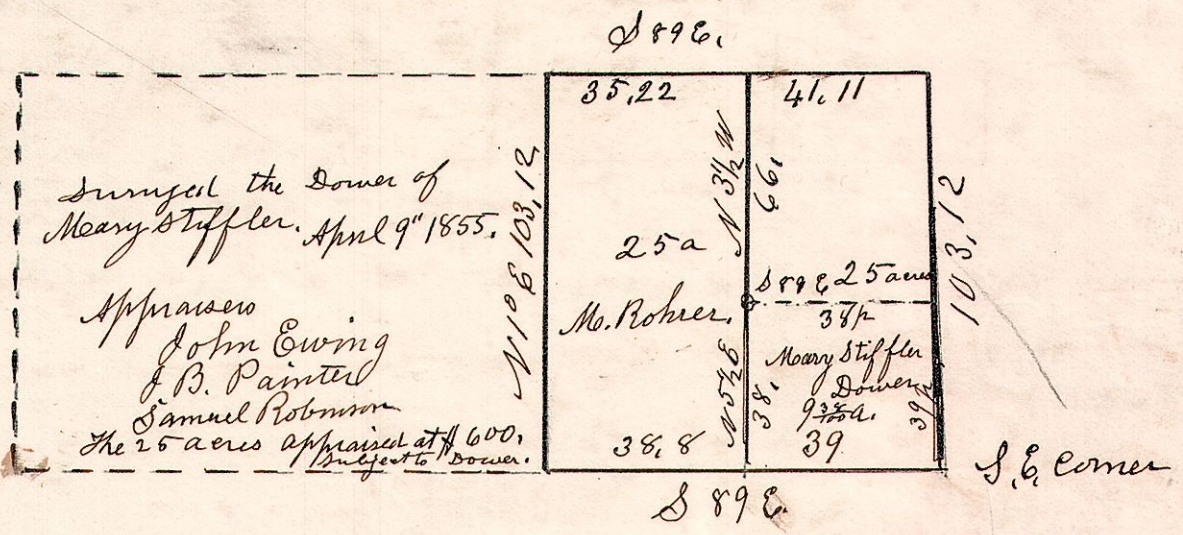 S 89 E.
35,22
41,11
Surveyed the Dower of
Mary Stiffler. April 9" 1855.
Appraisers
John Ewing
J. B. Painter
Samuel Robinson
The 25 acres appraised at $600.
Subject to Dower.
N 1° E 103,12
25a
M. Rohrer.
38,8
N 3½ W
66,
N 5½ E
38.
S 89 E 25 acres
38p
Mary Stiffler
Dower
39
39p
103,12
S. E. Corner
S 89 E.